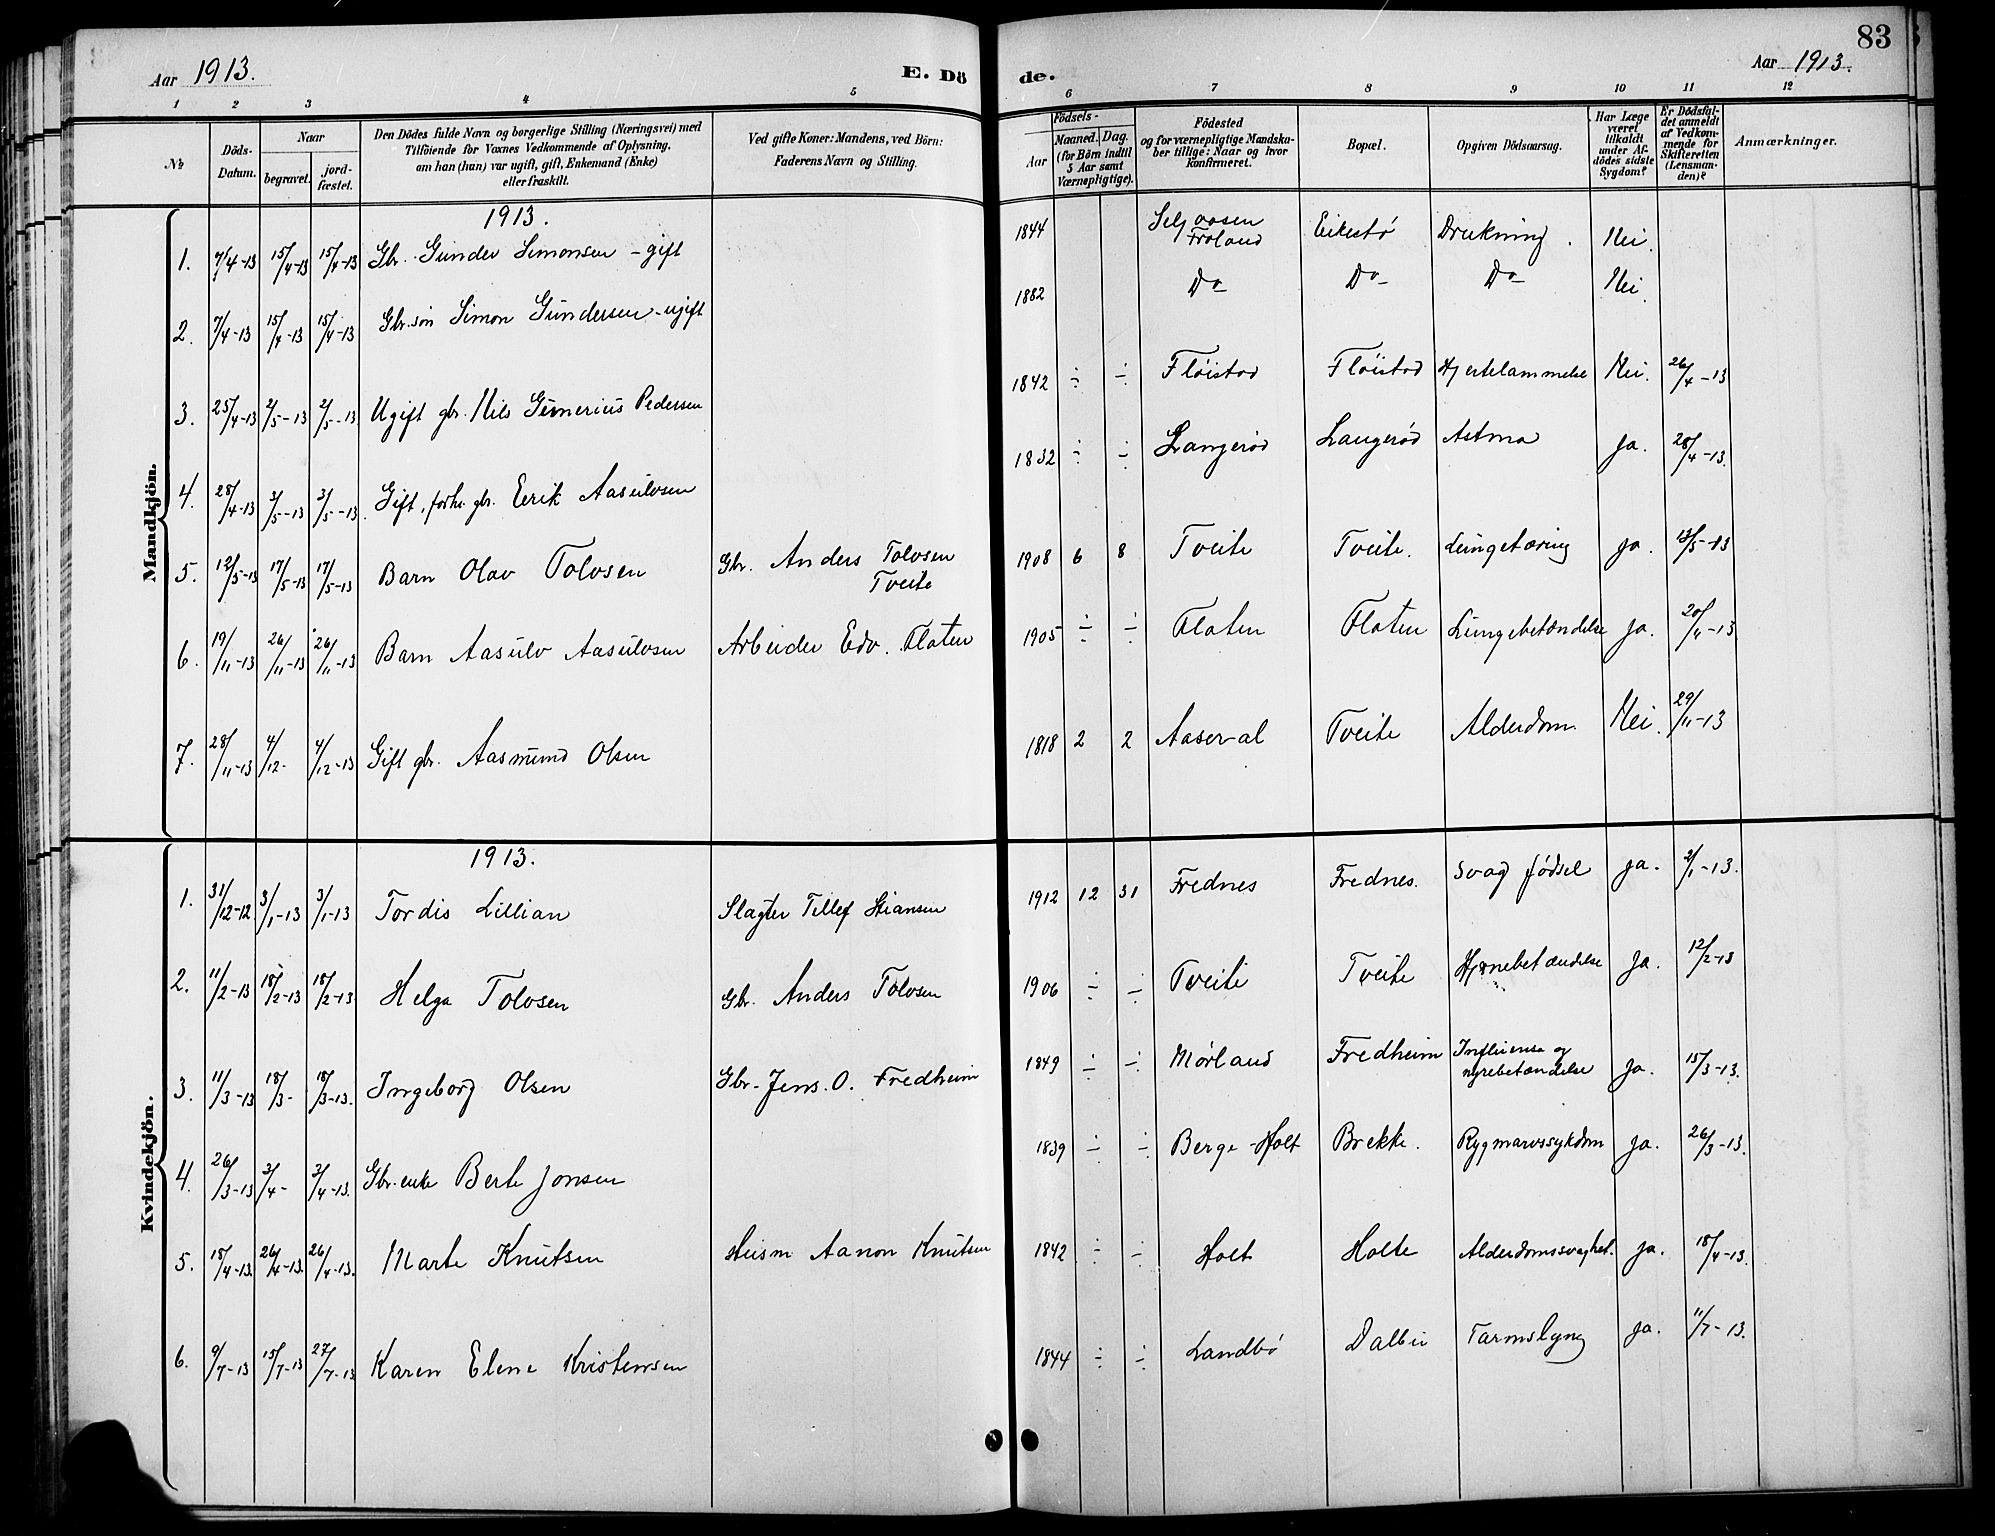 83
Aar 1913.
E. Dö
de.
Aar 1913.
1 2 3 4 5 6 7 8 9 10 11 12
№
Döds-
Datum.
Naar
begravet.
jord-
fæstet.
Den Dödes fulde Navn og borgerlige Stilling (Næringsvei) med
Tilföiende for Voxnes Vedkommende af Oplysning,
om han (hun) var ugift, gift, Enkemand (Enke)
eller fraskilt.
Ved gifte Koner: Mandens, ved Börn:
Faderens Navn og Stilling.
Födsels-
Aar
Maaned. Dag.
(for Börn indtil
5 Aar samt
Værnepligtige).
Födested
og for værnepligtige Mandska-
ber tillige: Naar og hvor
Konfirmeret.
Bopæl.
Opgiven Dödsaarsag.
Har Læge
været
tilkaldt
under Af-
dödes sidste
Sygdom?
Er Dödsfal-
det anmeldt
af Vedkom-
mende for
Skifteretten
(Lensman-
den)?
Anmærkninger.
Mandkjön.
1913.
1. 7/4-13 15/4-13 15/4-13 Gbr. Gunder Simonsen - gift 1844 Seljaasen Eikestø Drukning. Nei.
Froland
2. 7/4-13 15/4-13 15/4-13 Gbr.søn Simon Gundersen - ugift 1882 Do Do Do Nei.
3. 25/4-13 2/5-13 2/5-13 Ugift gbr. Nils Gunerius Pedersen 1842 ÷ ÷ Fløistad Fløistad Hjertelammelse Nei. 26/4-13
4. 28/4-13 3/5-13 3/5-13. Gift, forh. gbr. Eerik Aasulvsen 1832 ÷ ÷ Langerød Langerød Astma ja. 28/4-13.
5. 12/5-13 17/5-13 17/5-13 Barn Olav Tolvsen Gbr. Anders Tolvsen 1908 6 8 Tveite Tveite. Lungetæring ja. 13/5-13
Tveite
6. 19/11-13 26/11-13 26/11-13 Barn Aasulv Aasulvsen Arbeider Edv. Flaten 1905 ÷ ÷ Flaten Flaten Lungebetændelse ja. 20/11-13
7. 28/11-13 4/12- 4/12-13 Gift gbr. Aasmund Olsen 1818 2 2 Aaseral Tveite Alderdom. Nei. 29/11-13
Kvindekjön.
1913.
1. 31/12-12 3/1-13 3/1-13 Tordis Lillian Slagter Tellef Stiansen 1912 12 31 Frednes Frednes. Svag fødsel ja. 2/1-13.
2. 11/2-13 18/2-13 18/2-13 Helga Tolvsen Gbr. Anders Tolvsen 1906 ÷ ÷ Tveite Tveite Hjernebetændelse ja. 12/2-13
3. 11/3-13 18/3- 18/3-13. Ingeborg Olsen Gbr. Jens. O. Fredheim 1849 ÷ ÷ Mørland Fredheim Influensa og ja. 15/3-13.
nyrebetændelse
4. 26/3-13 3/4- 3/4-13. Gbr. enke Berte Jonsen 1839 ÷ ÷ Berge-Holt Brekke. Rygmarvssykdom ja. 26/3-13.
5. 18/4-13. 26/4-13. 26/4-13. Marte Knutsen Husm Aanon Knutsen 1842 ÷ ÷ Holt Holte Alderdomssvaghet. ja. 18/4-13.
6. 9/7-13 15/7-13 27/7-13 Karen Elene Kristensen 1844 ÷ ÷ Landbø Dalbu Tarmslyng ja. 11/7-13.